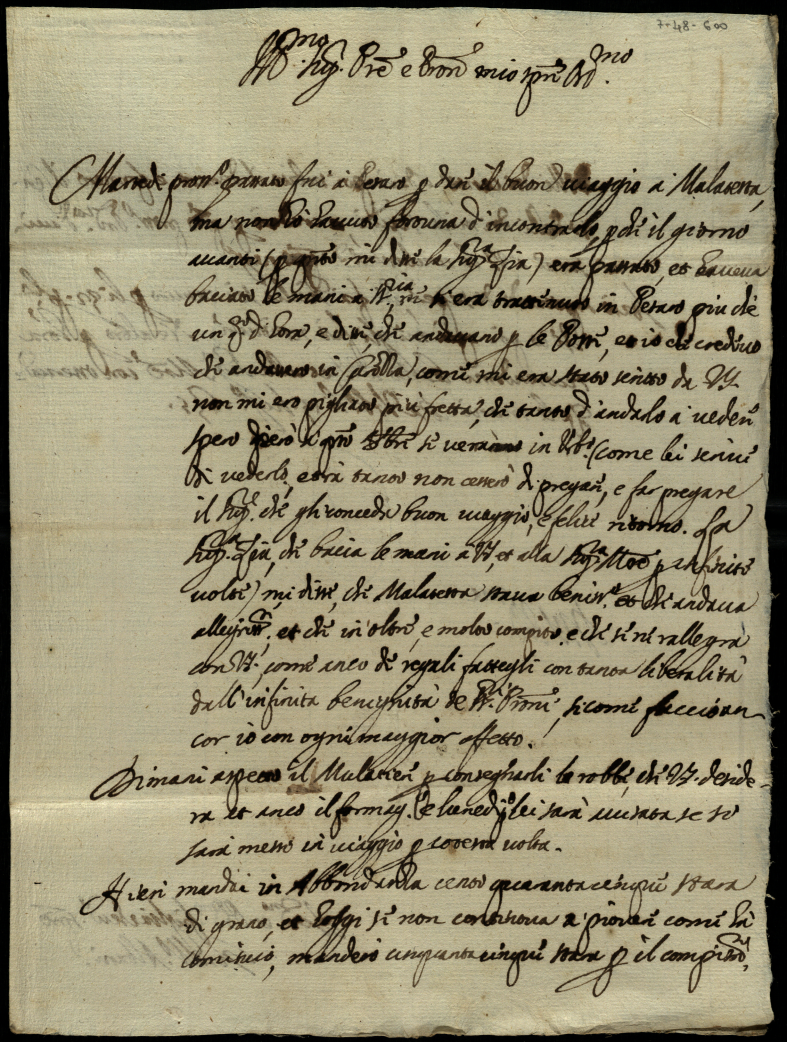 7-48-600
Ill.mo Sig.r P're e P'ron mio sp're Oss.mo
Martedì pross.o passato fui à Pesaro p dar' il buon viaggio à Malatesta,
ma non hò havuto fortuna d'incontrarlo, p che il giorno
avanti (p q'nto mi disse la Sig.ra Zia) era passato, et haveva
baciato le mani a si era trattenuto in Pesaro piu che
un d'hora, e disse, che andavano p le Poste, et io che credevo
che andassero in Carozza, come mi era stato scritto da VS.
non mi ero pigliato piu fretta, che tanto d'andarlo à veder'
spero però à q'sto 8bre se verranno in Urb.o (come lei scrive
di vederlo, e frà tanto non cesserò di pregar', e far pregare
il Sig.re che gli conceda buon viaggio, e felice ritorno. La
Sig.ra Zia, che bacia le mani a VS, et alla Sig.ra M're p infinite
volte) mi disse, che Malatesta stava beniss.o et che andava
allegriss.te, et che in oltre, e molto compito, e che se ne rallegra
con VS., come anco de regali fattegli con tanta liberalità
dall'infinita benignità de P'roni, si come faccio an-
cor io con ogni maggior affetto.
Dimani aspetto il Mulatier' p consegnarli le robbe, che VS. deside-
ra et anco il formag.o, e lunedi lei sarà avisata se si
sarà messo in viaggio p cotesta volta.
Hieri mandai in Abbondanza cento quaranta cinque stara
di grano, et hoggi se non continova a piover' come hà
comincio, manderò cinquanta cinque stara p il compim.to,